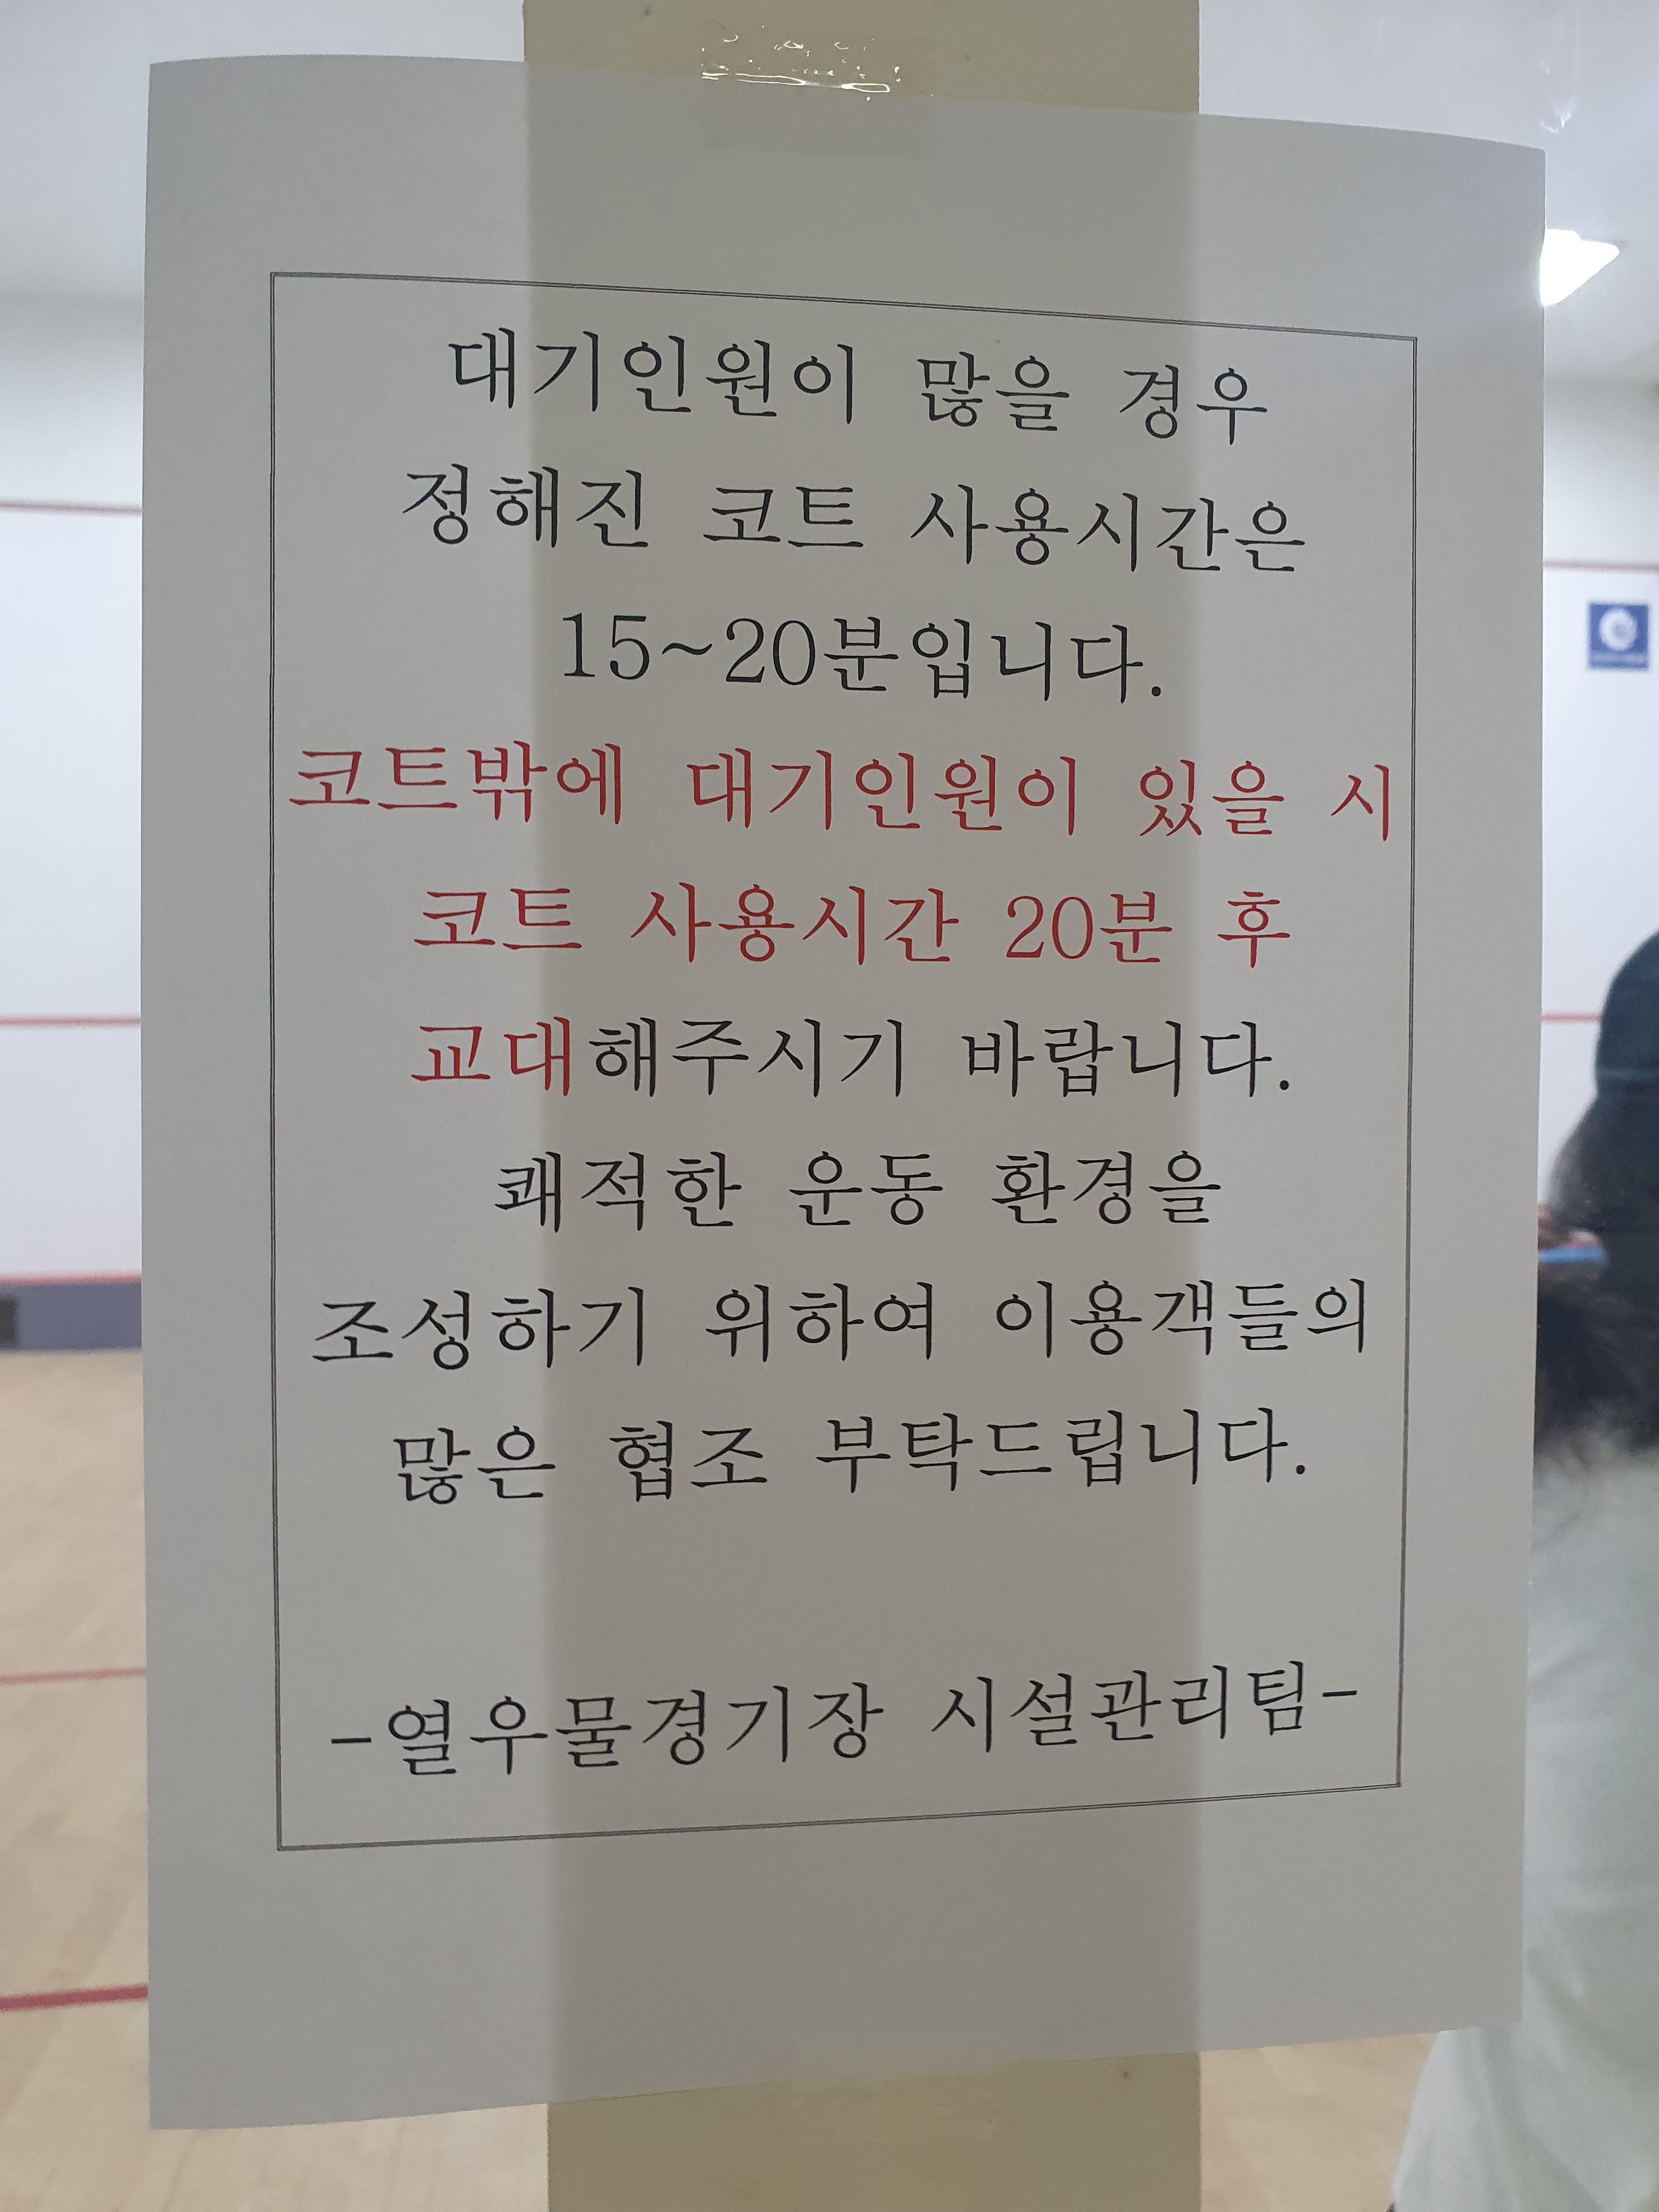 대기인원이 많을 경우
정해진 코트 사용시간은
15~20분입니다.
코트밖에 대기인원이 있을 시
코트 사용시간 20분 후
교대해주시기 바랍니다.
쾌적한 운동 환경을
조성하기 위하여 이용객들의
많은 협조 부탁드립니다.
-열우물경기장 시설관리팀-